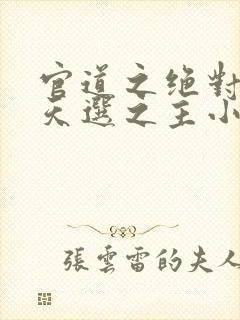 官道之绝對
天選之主小
張雲雷的夫人